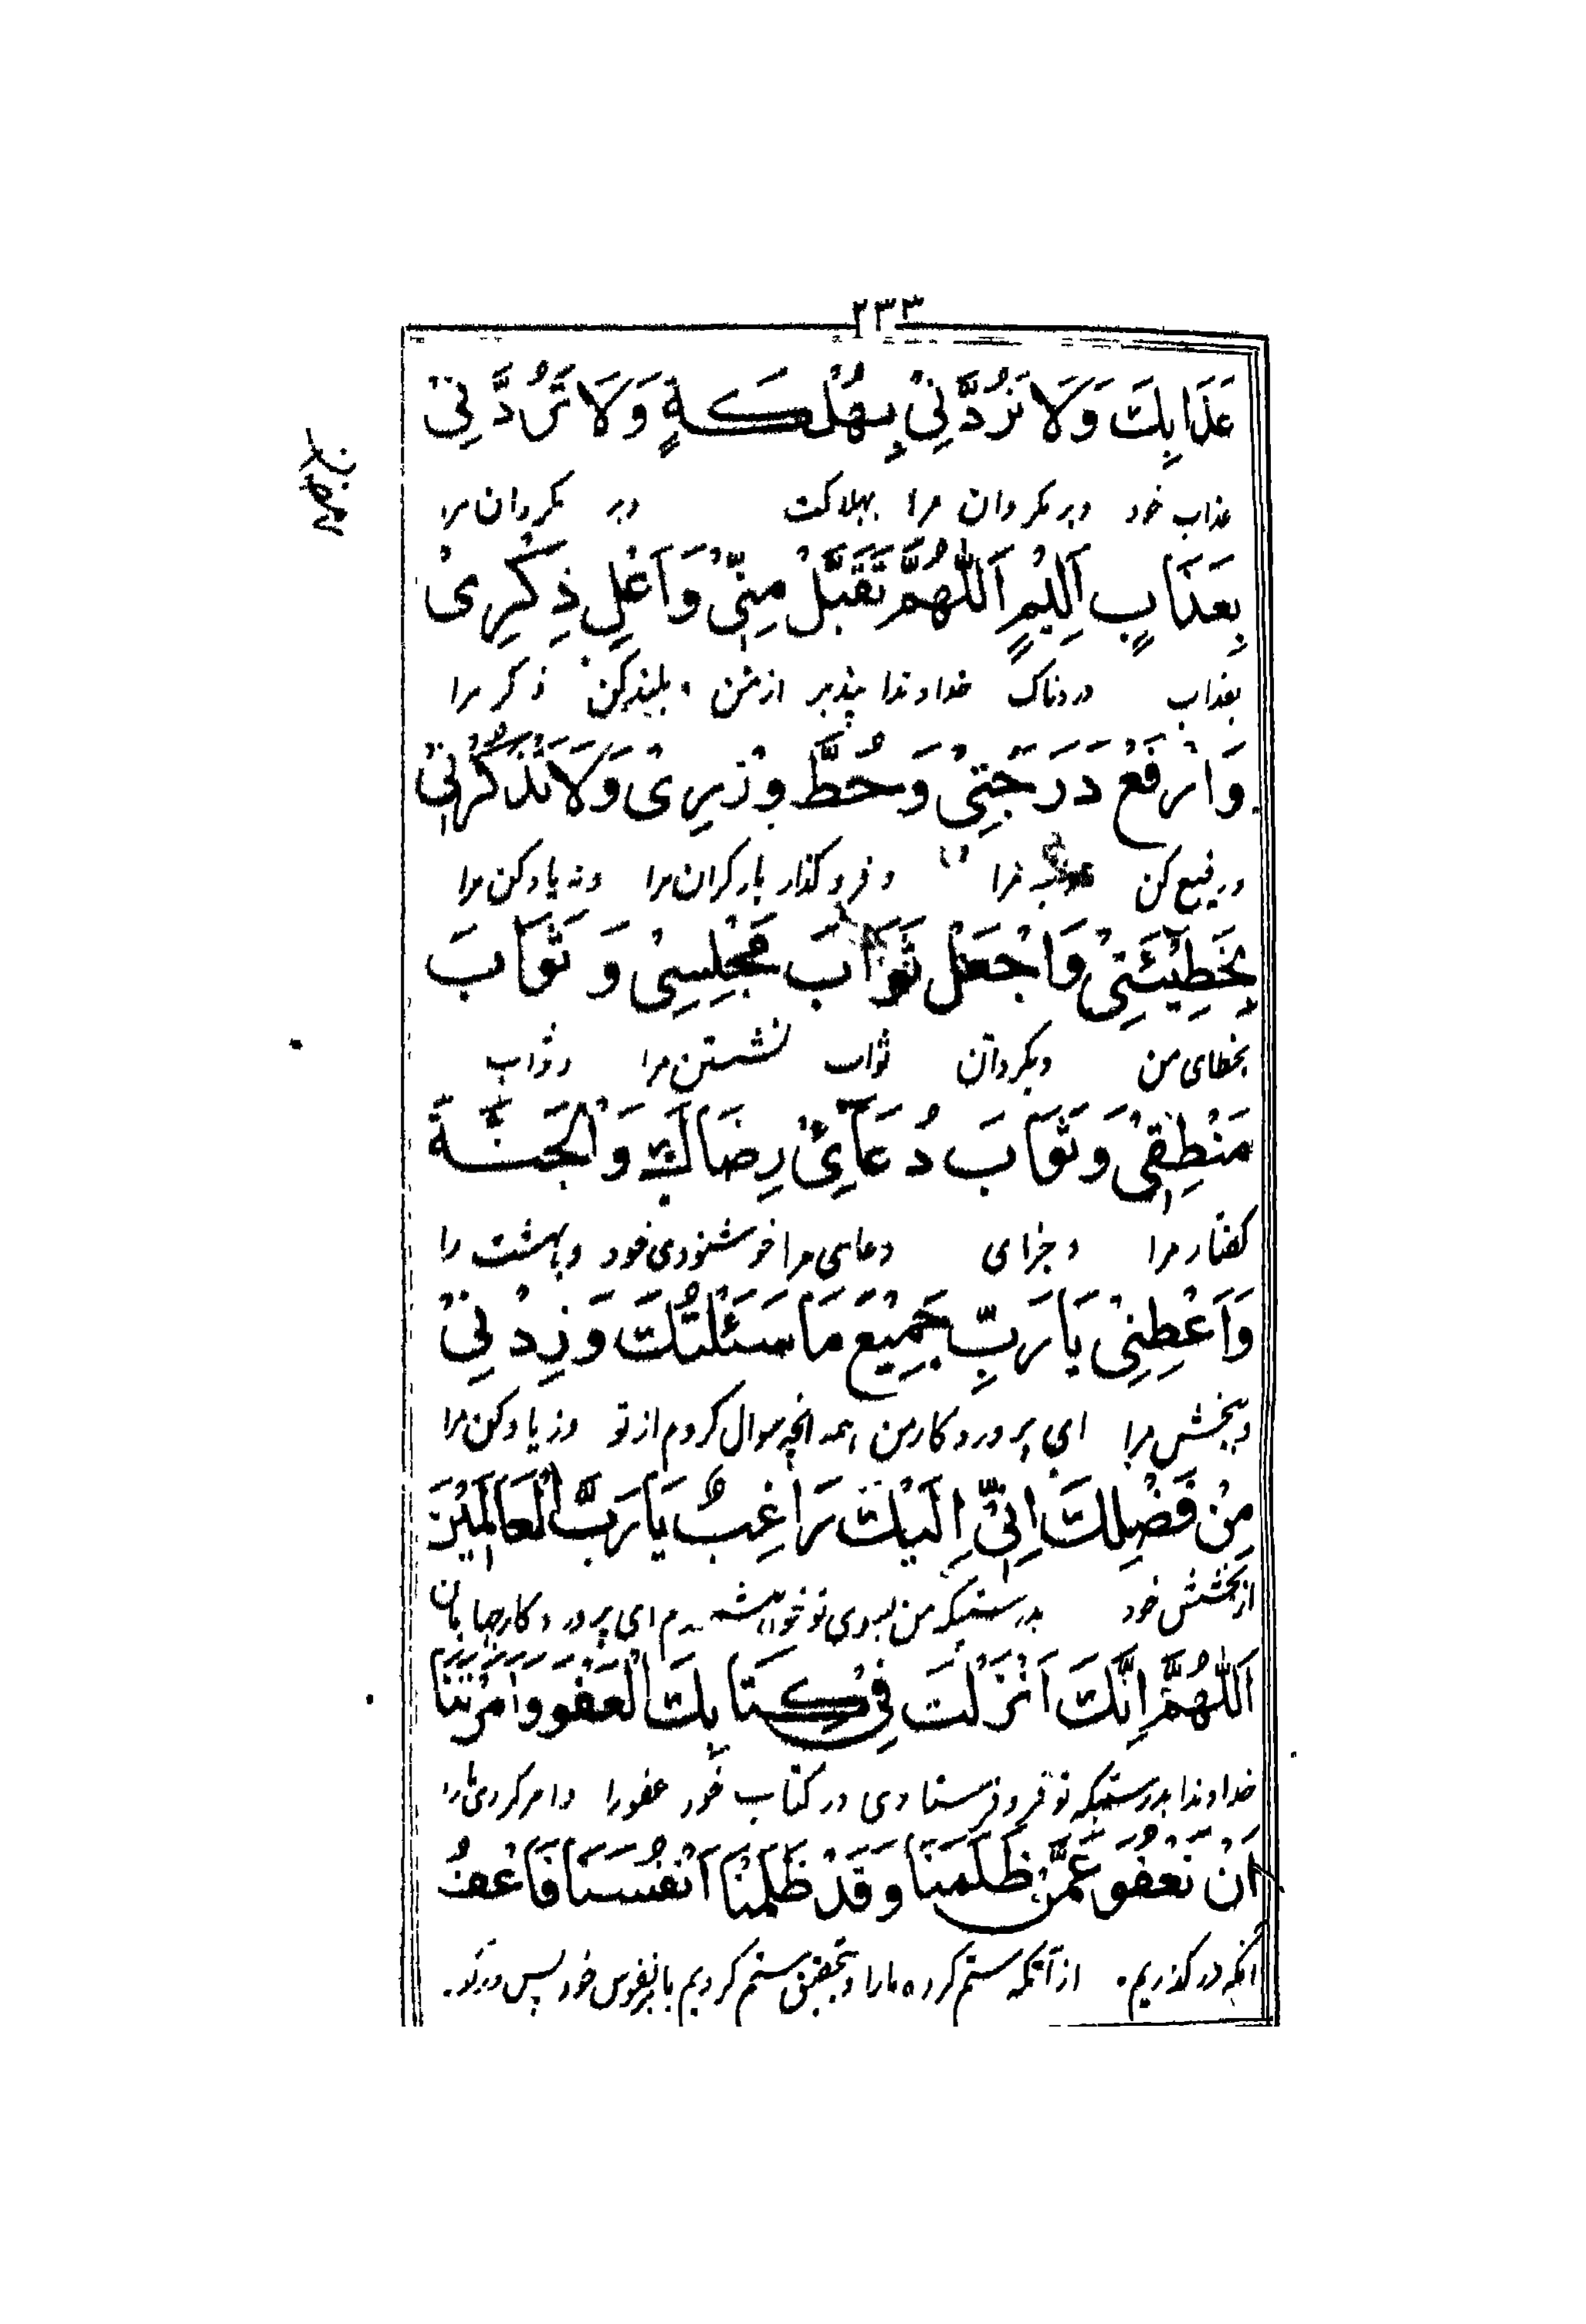 ۲۳۳
عَذَابِكَ وَلَا تَرُدَّنِيْ بِهُلْكَةٍ وَلَا تَرُدَّنِيْ
عذاب خود وبر مگردان مرا بهلاکت وبر مگردان مرا
بِعَذَابٍ اَلِيْمٍ اَللّٰهُمَّ تَقَبَّلْ مِنِّيْ وَاَعْلِ ذِكْرِيْ
بعذاب دردناک خداوندا بپذیر از من و بلندکن ذکر مرا
وَارْفَعْ دَرَجَتِيْ وَحُطَّ وِزْرِيْ وَلَا تَذْكُرْنِيْ
ورفیع کن مرا و فرو گذار بار گران مرا ونه یاد کن مرا
بِخَطِيْئَتِيْ وَاجْعَلْ ثَوَابَ مَجْلِسِيْ وَ ثَوَابَ
بخطای من وبگردان ثواب نشستن مرا وثواب
مَنْطِقِيْ وَثَوَابَ دُعَائِيْ رِضَاكَ وَالْجَنَّةَ
گفتار مرا وجزای دعای مرا خوشنودی خود وبهشت را
وَاَعْطِنِيْ يَا رَبِّ جَمِيْعَ مَا سَئَلْتُكَ وَزِدْنِيْ
وببخش مرا ای پروردگار من همه انچه سوال کردم از تو وزیاد کن مرا
مِنْ فَضْلِكَ اِنِّيْ اِلَيْكَ رَاغِبٌ يَا رَبَّ الْعَالَمِيْنَ
از بخشش خود بدرستیکه من بسوی تو ای پروردگار جهانیان
اَللّٰهُمَّ اِنَّكَ اَنْزَلْتَ فِيْ كِتَابِكَ الْعَفْوَ وَاَمَرْتَنَا
خداوندا بدرستیکه تو فرو فرستادی در کتاب خود عفو را وامر کردی ما را
اَنْ نَعْفُوَ عَمَّنْ ظَلَمَنَا وَقَدْ ظَلَمْنَا اَنْفُسَنَا فَاعْفُ
انکه در گذریم از آنکه ستم کرده ما را وبتحقیق ستم کردیم بر نفوس خود پس در گذر